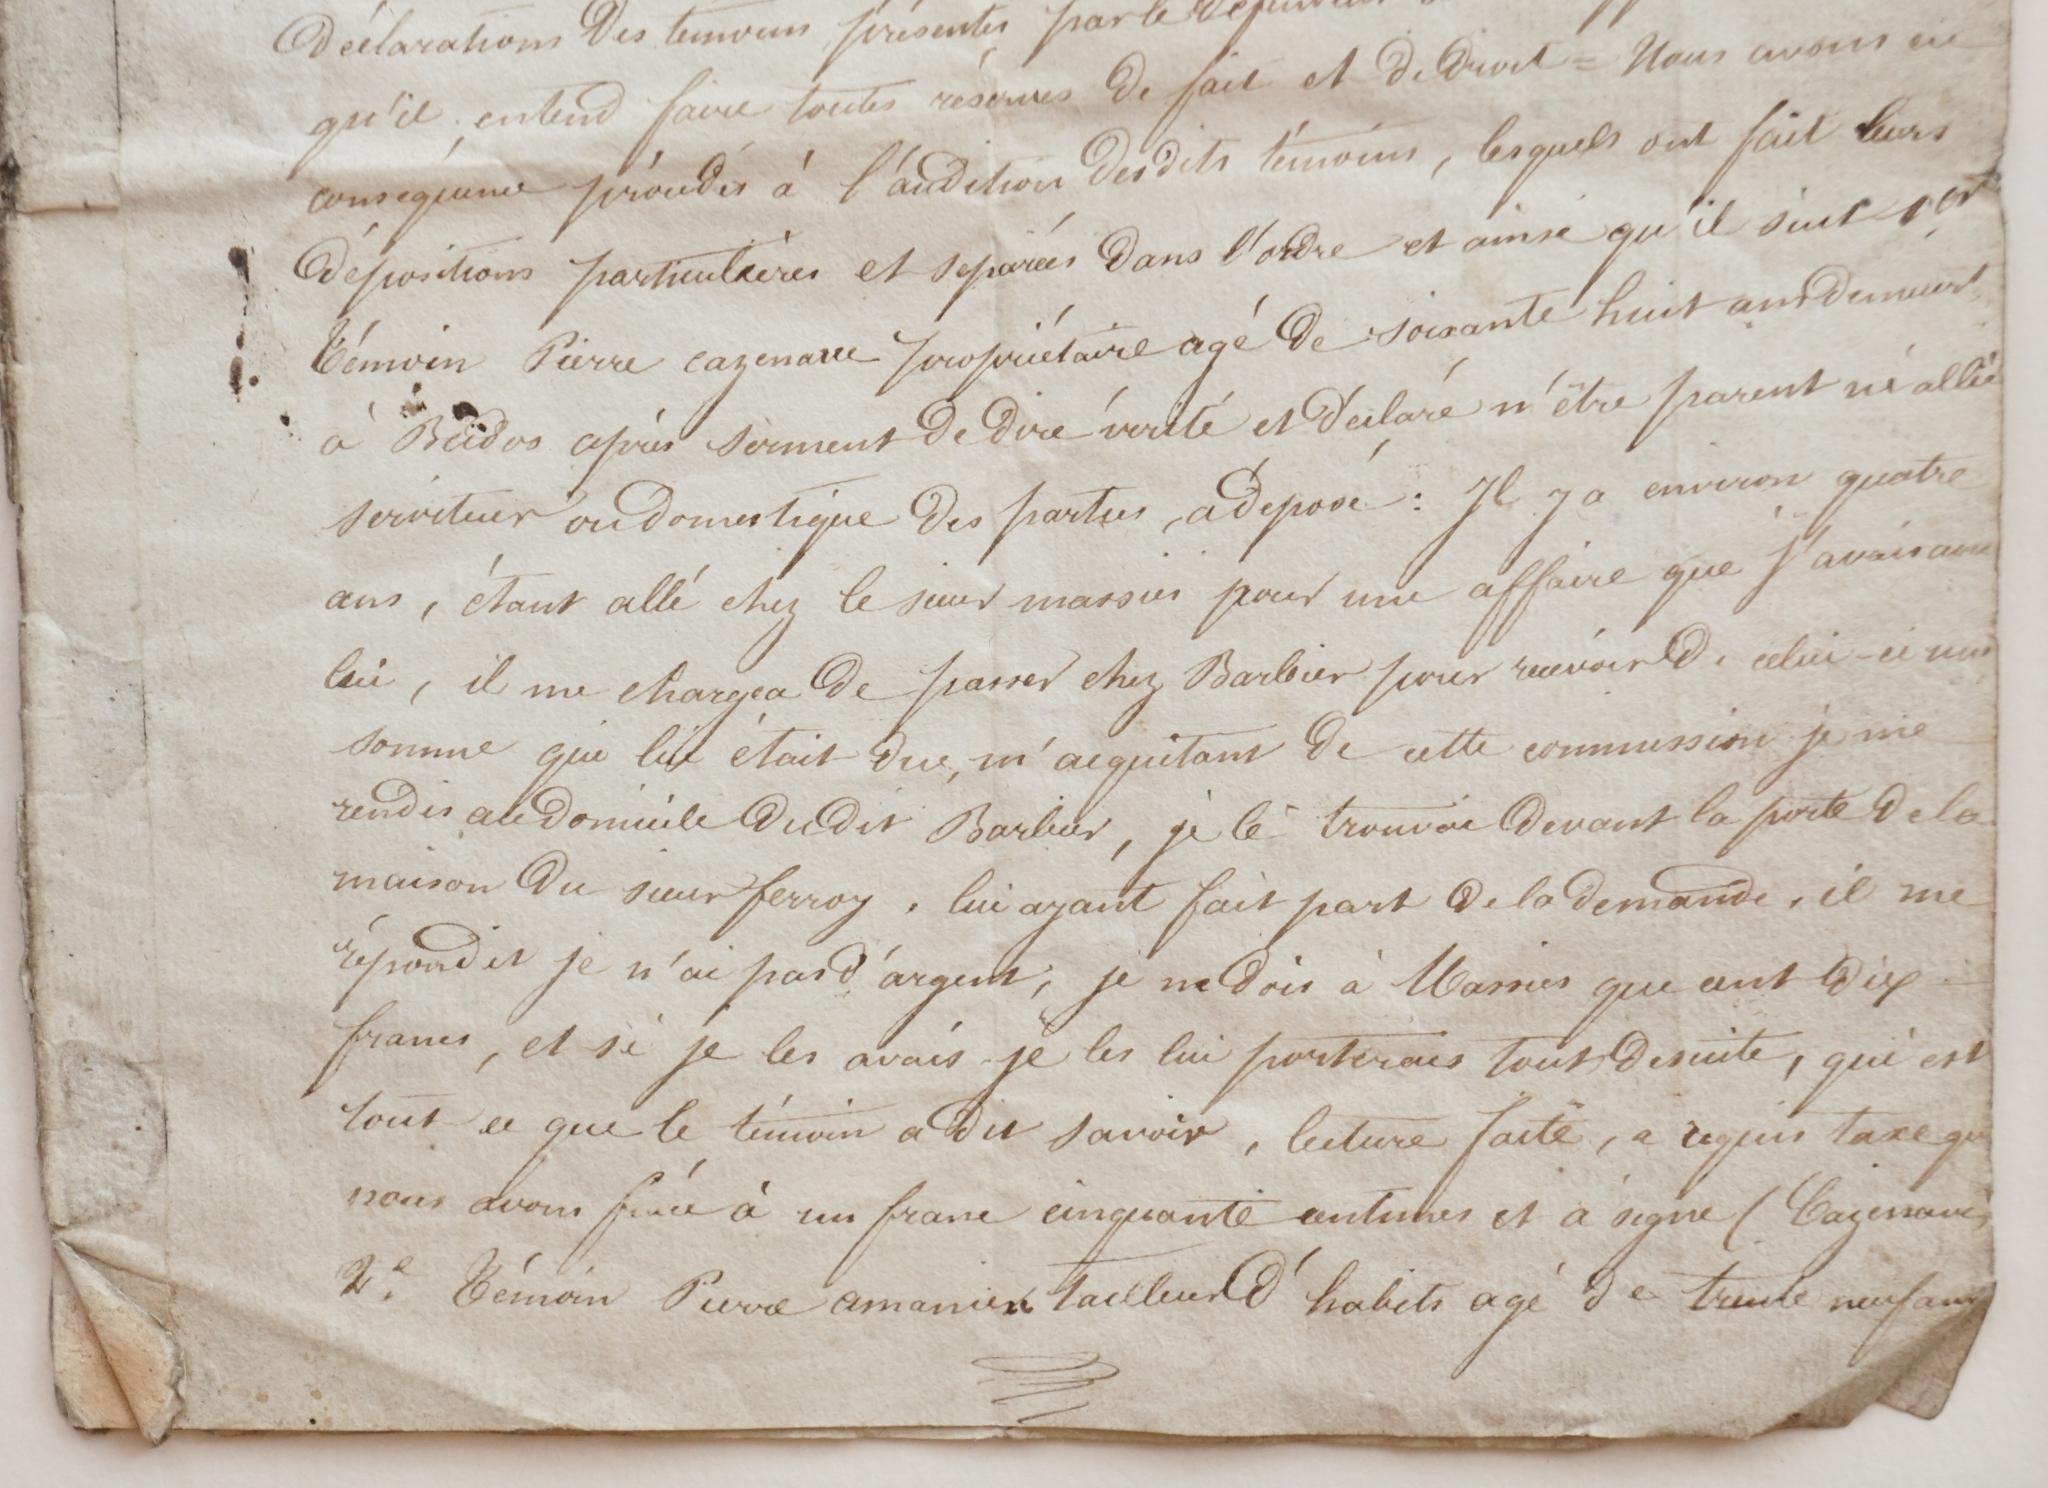 Déclarations des témoins présentés par le
qu'il entend faire toutes réserves de fait et de droit = Nous avons en
conséquence procédés à l'audition desdits témoins, lesquels ont fait leurs
dépositions particulières et séparées dans l'ordre et ainsi qu'il suit 1er
Témoin Pierre cazenave propriétaire agé de soixante huit ans demeurt
à Budos après serment de dire vérité et déclaré n'être parent ni allié
serviteur ou domestique des parties, a déposé : Il y a environ quatre
ans, étant allé chez le sieur massies pour une affaire que j'avais avec
lui, il me chargea de passer chez Barbier pour recevoir de celui-ci une
somme qui lui était due, m'acquitant de cette commission je me
rendis au domicile dudit Barbier, je le trouvai devant la porte de la
maison du sieur ferroy, lui ayant fait part de la demande, il me
répondit je n'ai pas d'argent, je ne dois à Massies que cent dix
francs, et si je les avais je les lui porterais tout de suite, qui est
tout ce que le témoin a dit savoir, lecture faite, a requis taxe que
nous avons fixée à un franc cinquante centimes et a signé ( Cazenave)
2e. Témoin Pierre amanieu tailleur d'habits agé de trente neuf ans